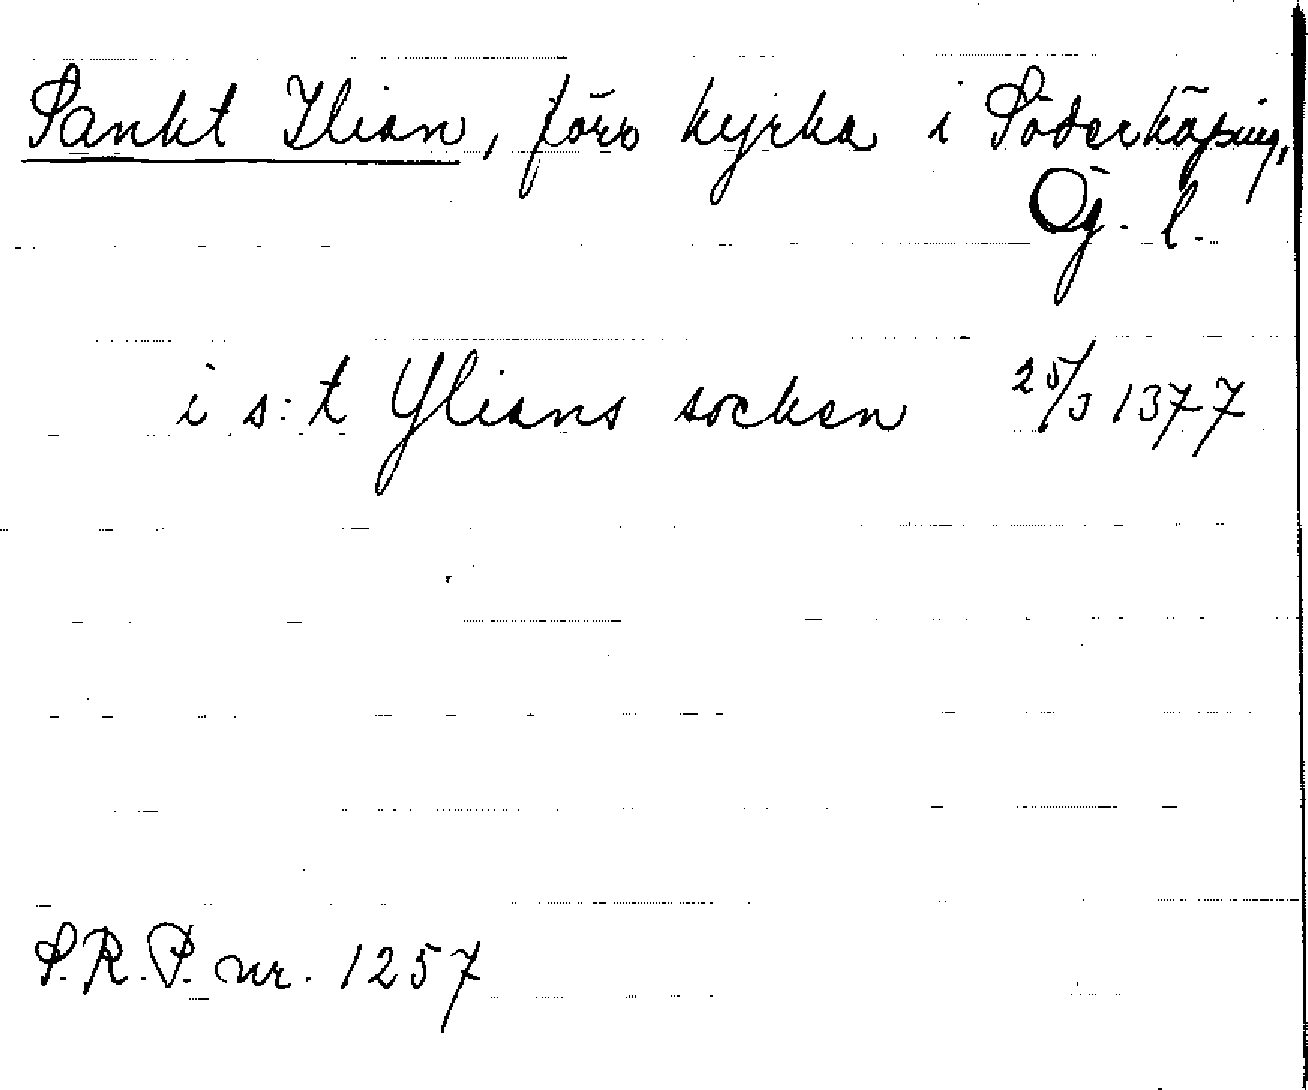 Sankt Ilian, förr kyrka i Söderköping,
Ög. l.
i s:t Ylians socken 25/3 1377
S.R.P. nr. 1257